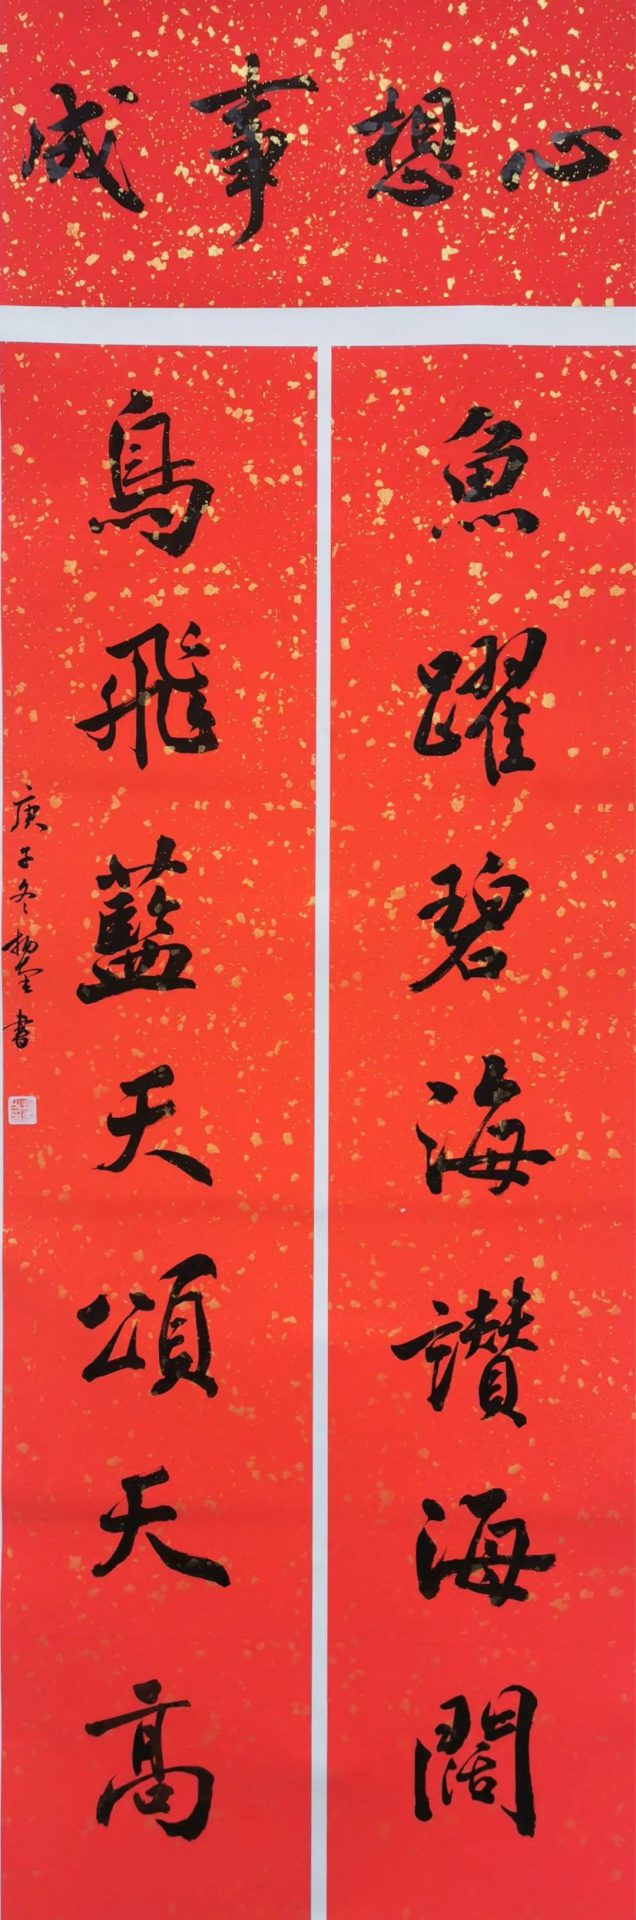 心想事成
魚躍碧海讃海闊
鳥飛藍天頌天高
庚子冬楊金書